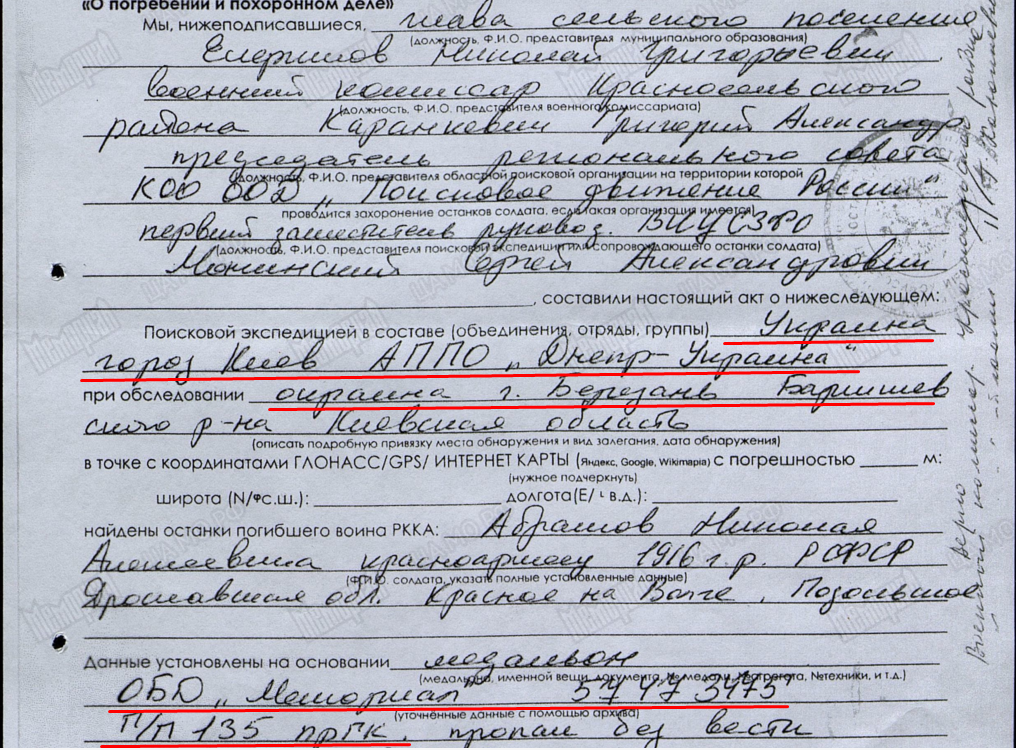 «О погребении и похоронном деле»
Мы, нижеподписавшиеся, глава сельского поселения
(должность, Ф.И.О. представителя муниципального образования)
Николай Григорьевич
военный комиссар Красносельского
(должность, Ф.И.О. представителя военного комиссариата)
района Каранкевич Григорий Александр
председатель регионального совета
(должность, Ф.И.О. представителя областной поисковой организации на территории которой
КОО ООД „Поисковое движение России“
проводится захоронение останков солдата, если такая организация имеется)
первый заместитель руковод. ВИЦ СЗФО
(должность, Ф.И.О. представителя поисковой экспедиции или сопровождающего останки солдата)
Сергей Александрович
, составили настоящий акт о нижеследующем:
Поисковой экспедицией в составе (объединения, отряды, группы) Украина
город Киев АППО „Днепр-Украина“
при обследовании окраина г. Березань Баришев
ского р-на Киевская область
(описать подробную привязку места обнаружения и вид залегания, дата обнаружения)
в точке с координатами ГЛОНАСС/GPS/ ИНТЕРНЕТ КАРТЫ (Яндекс, Google, Wikimapia) с погрешностью м:
(нужное подчеркнуть)
широта (N/ с.ш.): долгота(E/ в.д.):
найдены останки погибшего воина РККА: Абрамов Николая
красноармеец 1916 г.р. РСФСР
(Ф.И.О. солдата, указать полные установленные данные)
Ярославская обл. Красное на Волге,
Данные установлены на основании медальон
(медальона, именной вещи, документа, № медали, №агрегата, №техники, и т.д.)
ОБД „Мемориал“ 57473475
(уточнённые данные с помощью архива)
П/П 135 прГК. пропал без вести
Верно
Военный комиссар Красносельского района